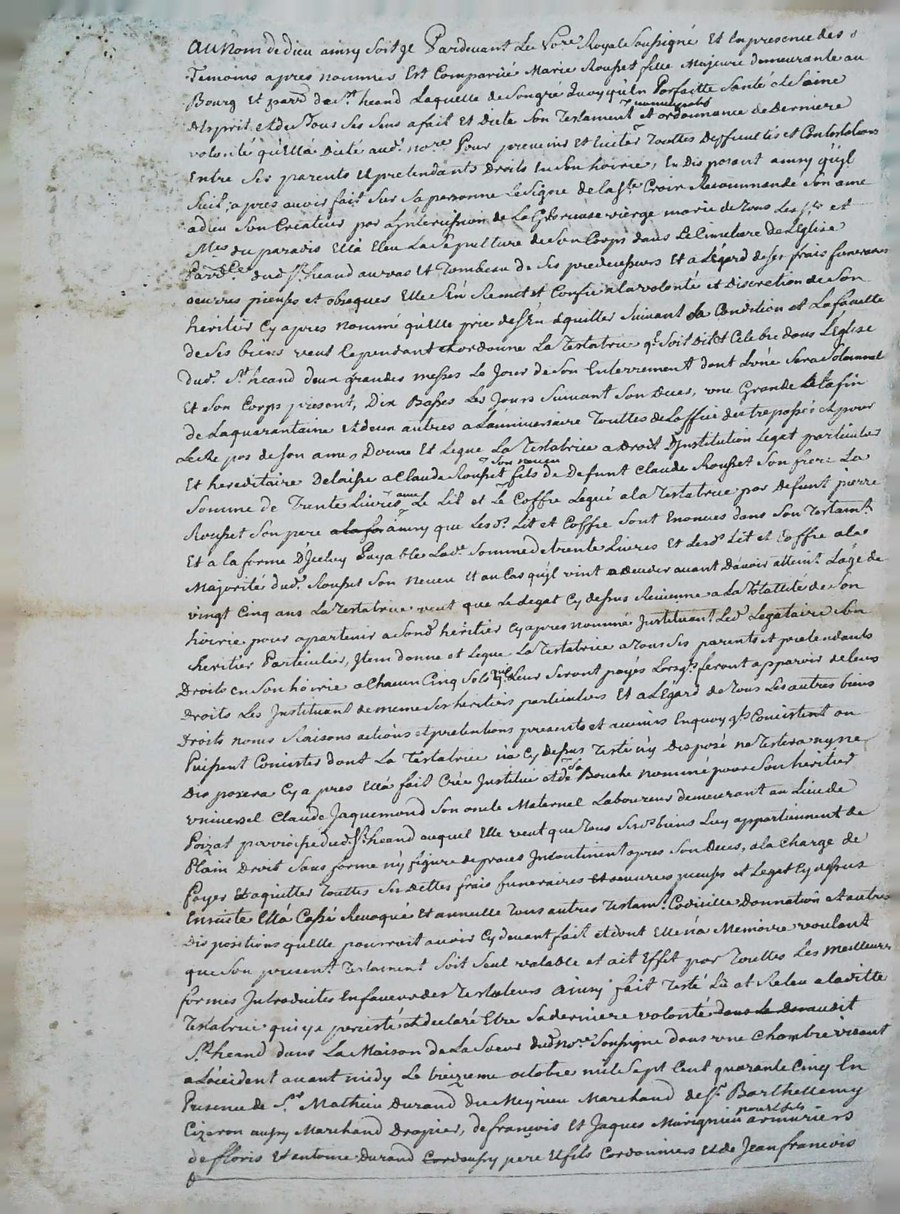 au Nom de dieu ainsy soit ge Pardevant Le Nore Royal Soussigné Et En presence des
Temoins apres nommés Est Comparüe Marie Rouset fille Majeure demeurante au
Bourg Et parr de St heand Laquelle de Son gré quoyqu'En Parfaitte Santé de Saine
d'Esprit, et de Tous Ses Sens a fait et Dicté Son Testament nuncupatif et ordonnance de derniere
volonté qu'Ella Dicté aud. nore Pour prevenir et Eviter Touttes Difficultés et Contestations
Entre Ses parents Et pretendants Droits En Son hoirie, En Disposant ainsy qu'jl
Suit, apres avoir fait Sur Sa personne Le Signe de la Ste Croix Recommandé Son ame
a dieu Son Créateur par L'intercession de La Glorieuse vierge marie de Tous Les Sts et
Stes du paradis Ella Eleu La Sépulture de Son Corps dans Le Cimetiere de L'Eglise
Parr dud. St heand au vas et Tombeau de Ses predecesseurs Et a L'égard de Ses frais funeraires
oeuvres pieuses et obseques Elle S'En Remet et Confie a la volonté et Discretion de Son
heritier Cy apres nommé qu'Elle prie de S'En aquitter Suivant Sa Condition et La faculté
de Ses biens veut Cependant et ordonne La Testatrice qe Soit Dit et Celebré dans L'Eglise
dud. St heand deux grandes messes Le Jour de Son Enterrement dont L'une Sera Solennel
Et Son Corps present, Dix Basses Les Jours Suivant Son Deces, une Grande a La fin
de La quarantaine et deux autres a L'anniversaire Touttes de L'office des trepassés et pour
Le Repos de Son ame, Donne Et Legue La Testatrice a Droit D'Institution Legat particulier
Et hereditaire Delaisse a Claude Rouset Son neveu fils de Defunt Claude Rouset Son frere La
Somme de Trente Livres avec Le Lit et Le Coffre Legué a la Testatrice par Defunt pierre
Rouset Son pere ainsy que Lesd. Lit et Coffre Sont Enoncés dans Son Testamt
Et a la forme D'jceluy Payable Lad. Somme de trente Livres Et Lesd. Lit et Coffre a la
Majorité dud. Rouset Son Neveu Et au Cas qu'jl vint a deceder avant D'avoir atteint L'age de
vingt Cinq ans La Testatrice veut que Le Legat Cy dessus Revienne a La Totallité de Son
hoirie pour appartenir a Sond. héritier Cy apres nommé Instituent Led. Legataire Son
heritier Particulier, Jtem donne et Legue La Testatrice a Tous Ses parents et pretendants
Droits en Son hoirie a Chacun Cinq Sols qui Leur Seront payés Lorsqs feront apparoir de leurs
Droits Les Jnstituant de meme Ses héritiers particuliers Et a L'Egard de Tous Les autres biens
Droits noms Raisons actions et pretentions presents et avenirs En quoy qls Consistent ou
Puissent Consister dont La Testatrice n'a Cy dessus Testé n'y Disposé ne Testera ny ne
Disposera Cy apres Ella fait Créé Jnstitué et de Sa Bouche nommé pour Son héritier
Universel Claude Jaquemond Son oncle Maternel Laboureur demeurant au Lieu de
Poizat parroisse dud. St heand auquel Elle veut que Tous Sesd. biens Luy appartiennent de
Plain Droit Sans forme n'y figure de proces Jncontinent apres Son Deces, a la Charge de
Payer Et aquitter Touttes Ses Dettes frais funeraires Et oeuvres pieuses et Legat Cy dessus
Ensuite Ella Cassé Revoqué Et annullé Tous autres Testamt Codicille Donnation et autres
Dispositions qu'Elle pourroit avoir Cy devant fait et dont Elle n'a Memoire voulant
que Son present Testament Soit Seul valable et ait Effet par Touttes Les meilleures
formes Jntroduites En faveur des Testateurs ainsy fait Testé Lû et Releu a la ditte
Testatrice qui y a persisté et declaré Etre Sa derniere volonté
St heand dans La Maison de La Soeur dud. nore Soussigné dans une Chambre visant
a L'occident avant midy Le treizeme octobre mil Sept Cent quarante Cinq En
Presence de Sr Mathieu Durand Marchand de Sr Barthellemy
Cizeron aussy Marchand Drapier, de françois Et Jaques Marignieu armuriers
de floris Et antoine Durand pere Et fils Cordonniers et de Jean francois